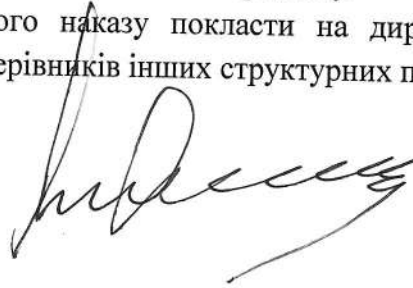 ого наказу покласти на дир
ерівників інших структурних п